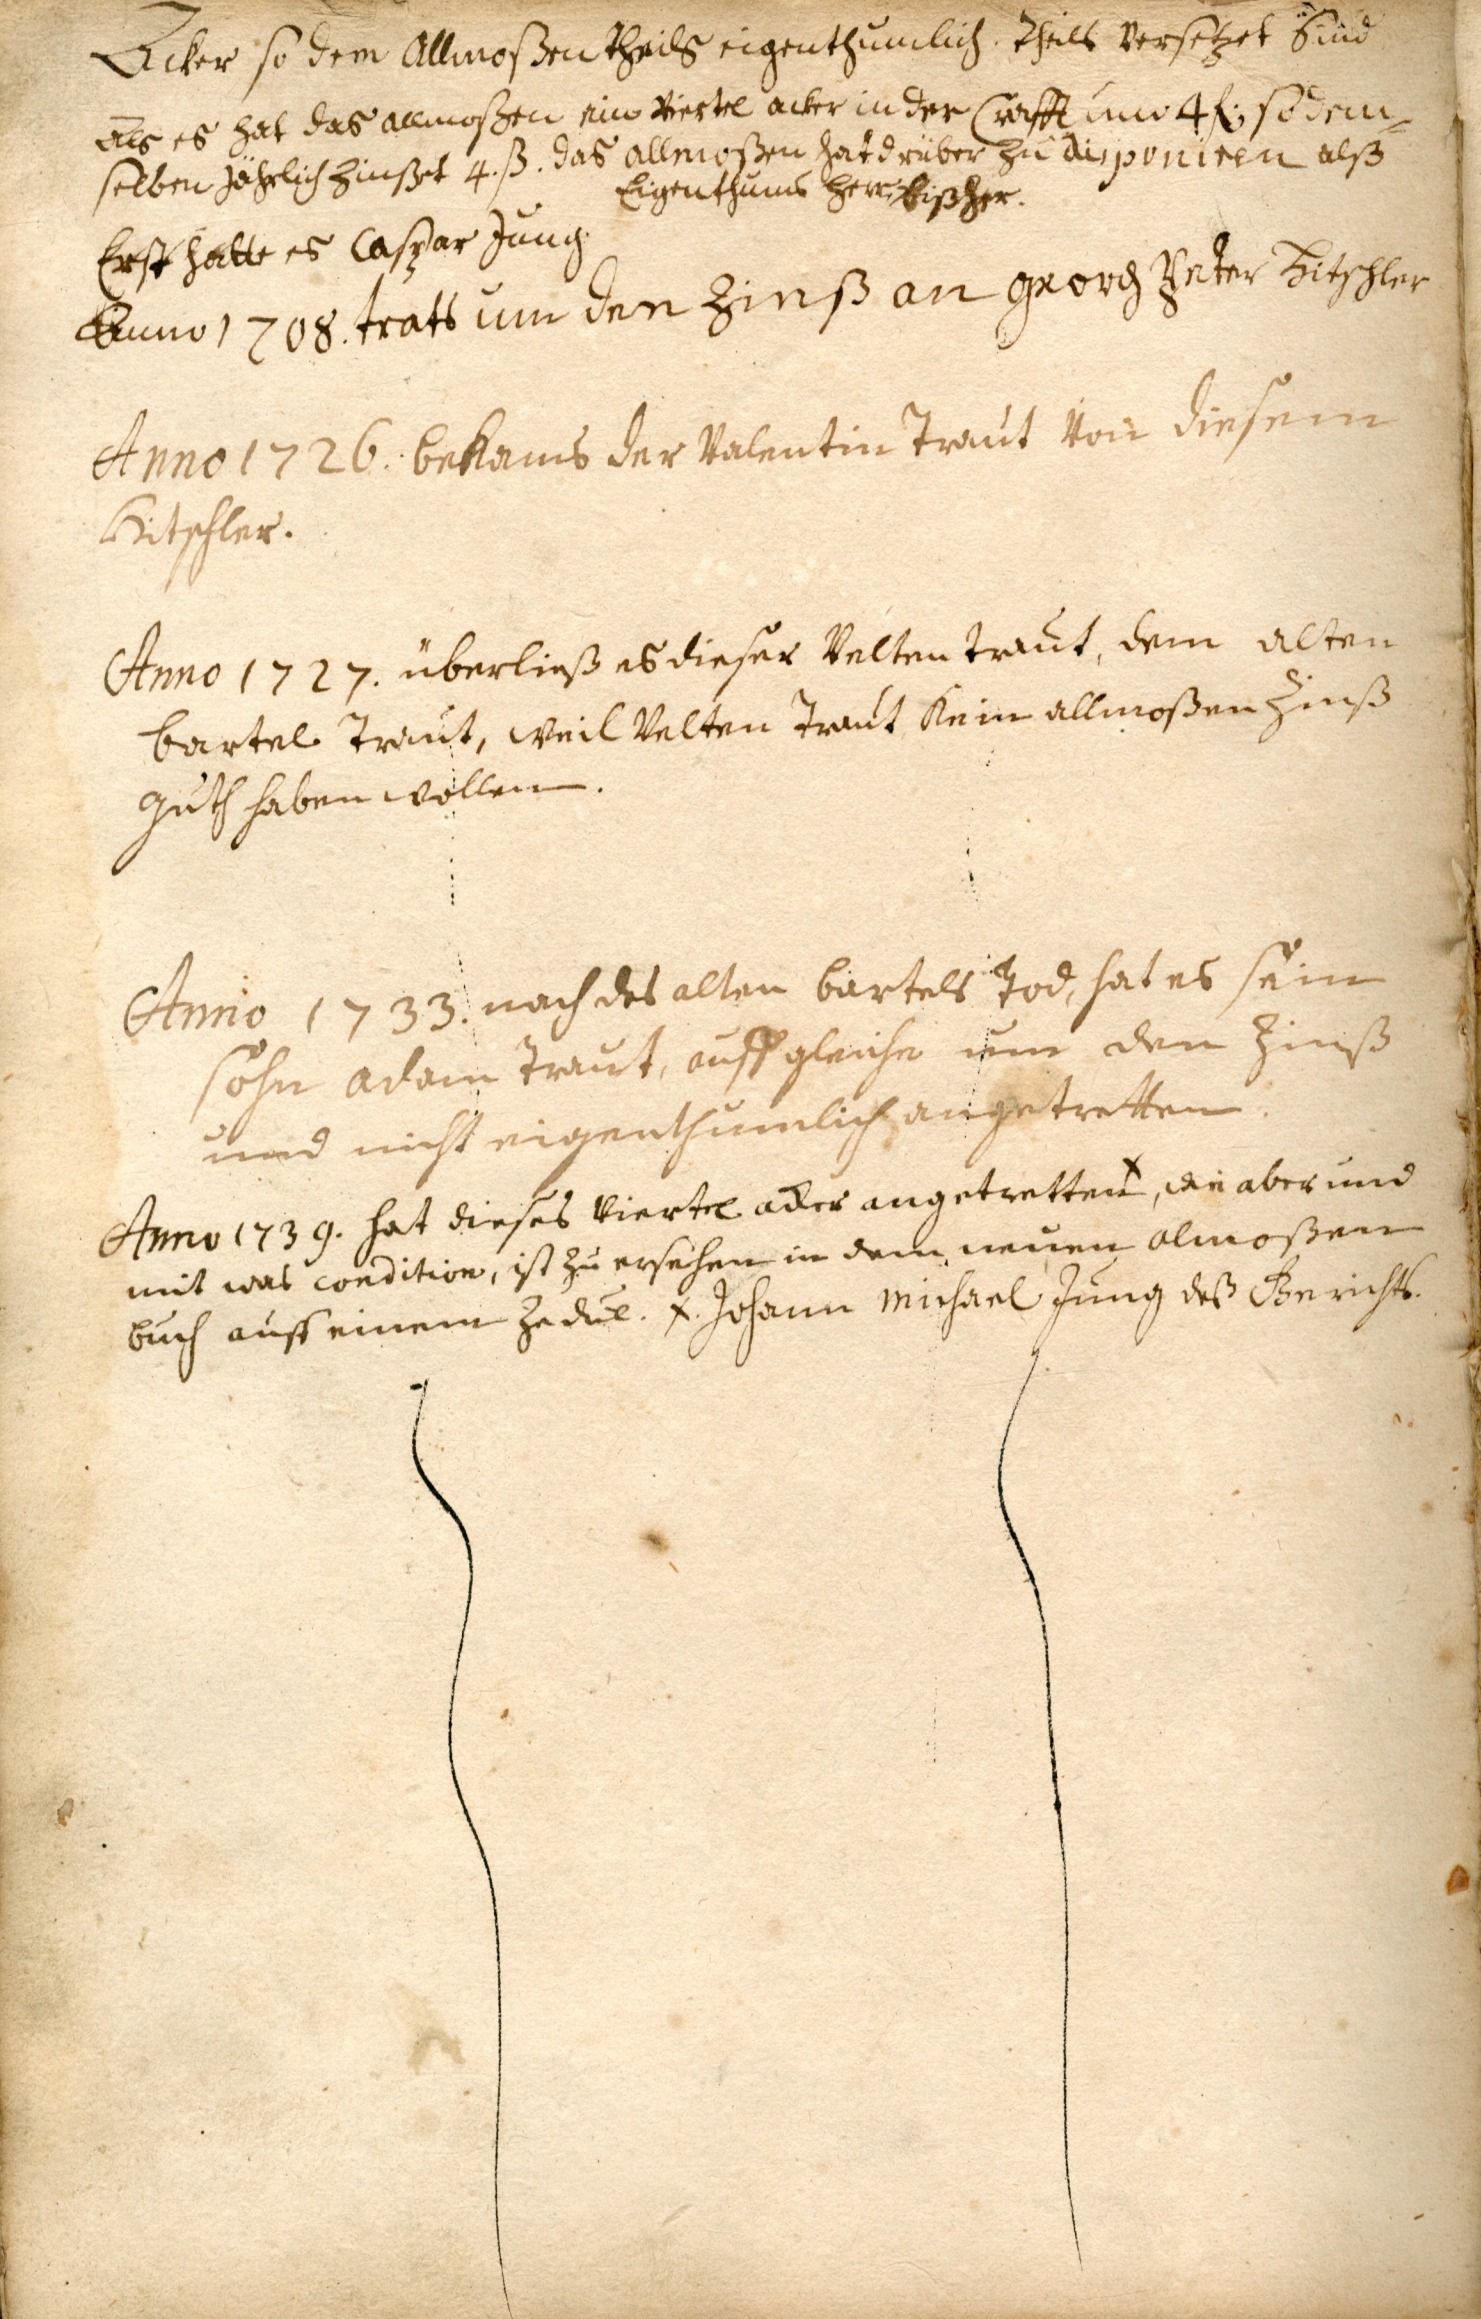 Äcker so dem Allmoßen theils eigenthumlich. theils versetzet sind
Als es hat das allmoßen ein viertel acker in der Crafft um 4 fl. so dem-
selben jährlich zinßet 4. ß. das allmoßen hat drüber zu disponiren alß
Eigenthums herr bißher.
Erst hatte es Caspar Jung.
Anno 1708. trats um den Zinß an Georg Peter Hitschler
Anno 1726. bekams der Valentin Traut von diesem
Hitschler.
Anno 1727. überließ es dieser Velten Traut, dem alten
bartel Traut, weil Velten Traut kein allmoßen Zinß
guth haben wollen.
Anno 1733. nach des alten bartels Tod, hat es sein
sohn adam Traut, auff gleiche um den Zinß
und nicht eigenthumlich angetretten.
Anno 1739. hat dieses viertel acker angetretten x, wie aber und
mit was condition, ist zu ersehen in dem neuen almoßen
buch auff einem Zedul. x. Johann Michael Jung deß Gerichts.